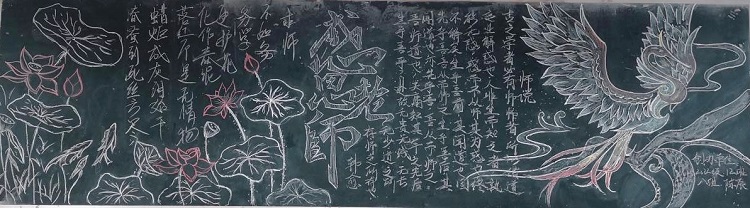 春蚕到死丝方尽
蜡炬成灰泪始干
落红不是无情物
化作春泥
更护花
务学
不如务
求师
师说
古之学者必有师师者所以传道
受业解惑也人非生而知之者孰
能无惑惑而不从师其为惑也终
不解矣生乎吾前其闻道也固
先乎吾吾从而师之生乎吾后其
闻道也亦先乎吾吾从而师之
吾师道也夫庸知其年之先后
生于吾乎是故无贵无贱无长
无少道之所
存师之所存也
韩愈
12班